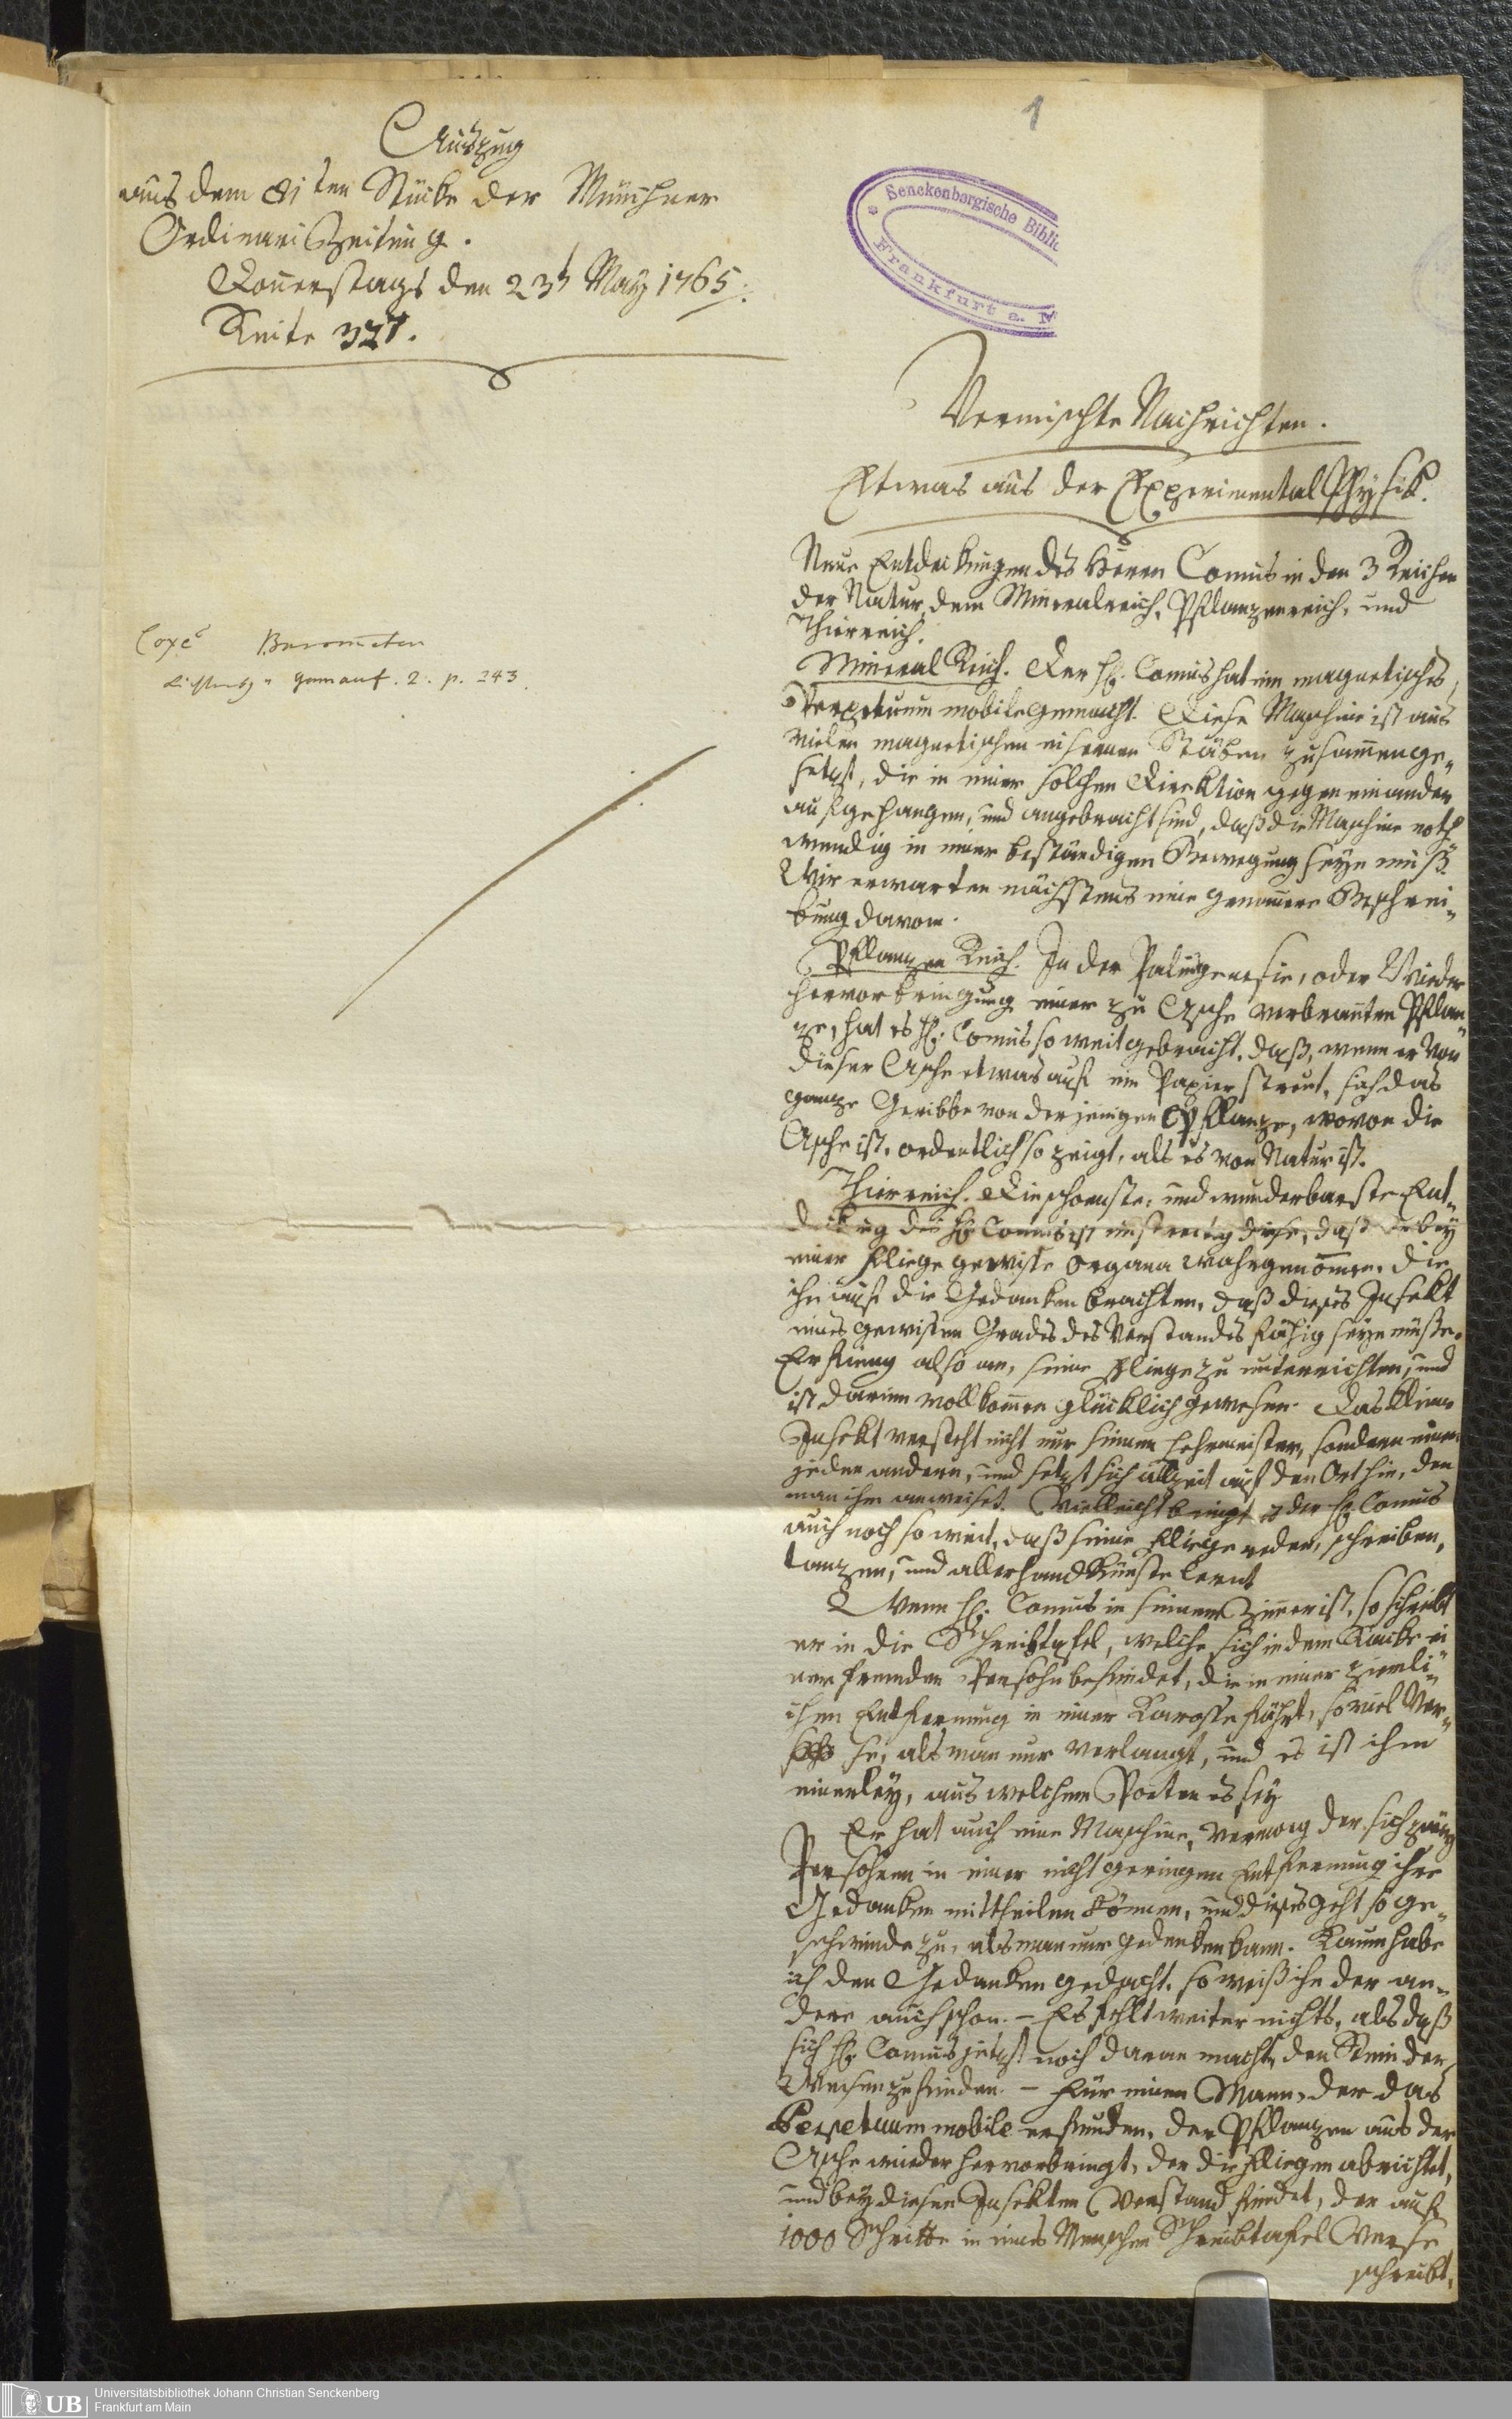 1
Auszug
aus dem 81ten Stücke der Münchner
Ordinari Zeitung.
Donnerstags den 23t May 1765.
Seite 327.
Senckenbergische Biblio
Frankfurt a. M
Vermischte Nachrichten.
Etwas aus der Experimental Physik.
Coxe's Barometer
Gamauf. 2. p. 243.
Neue Entdeckungen des Herrn Comus in den 3 Reichen
der Natur, dem Mineralreich, Pflanzenreich, und
Thierreich.
Mineral Reich. Der H. Comus hat ein magnetisches,
Perpetuum mobile gemacht. Diese Maschine ist aus
vielen magnetischen eisernen Stäben zusamenge-
setzt, die in einer solchen Direktion gegen einander
aufgehangen, und angebracht sind, daß die Maschine noth
wendig in einer beständigen Bewegung seyn muß.
Wir erwarten nächstens eine genauere Beschrei-
bung davon.
Pflanzen Reich. In der Palingenesie, oder Wieder
hervorbringung einer zu Asche verbranten Pflan-
ze, hat es H. Comus so weit gebracht, daß, wenn er von
dieser Asche etwas auf ein Papier streut, sich das
ganze Geribbe von derjenigen Pflanze, wovon die
Asche ist, ordentlich so zeigt, als es von Natur ist.
Thierreich. Die schoenste, und wunderbarste Ent-
deckung des H. Comus ist unstreitig diese, daß er bey
einer Fliege gewisse Organa wahrgenomen, die
ihn auf die Gedanken brachten, daß dieses Insekt
eines gewissen Grades des Verstandes fähig seyn müße.
Er fieng also an, seine Fliege zu unterrichten, und
ist darinn vollkomen glücklich gewesen. Das kleine
Insekt versteht nicht nur seinen Lehrmeister, sondern einen
jeden andern, und setzt sich allzeit auf den Ort hin, den
man ihm anweiset. Vielleicht bringt es der H. Comus
auch noch so weit, daß seine Fliege reden, schreiben,
tanzen, und allerhand Künste lernt
Wenn H. Comus in seinem Zimer ist, so schreibt
er in die Schreibtafel, welche sich in dem Sacke ei
ner fremden Persohn befindet, die in einer ziemli-
chen Entfernung in einer Karosse fährt, so viel Ver-
se, als man nur verlangt, und es ist ihm
einerley, aus welchem Poeten es sey
Er hat auch eine Maschine, vermög der sich zwey
Persohnen in einer nicht geringen Entfernung ihre
Gedanken mittheilen können, und dieses geht so ge-
schwinde zu, als man nur gedenken kann. Kaum habe
ich den Gedanken gedacht, so weiß ihn der an-
dere auch schon. – Es fehlt weiter nichts, als daß
sich H. Comus jetzt noch daran macht, den Stein der
Weisen zu finden. – Für einen Mann, der das
Perpetuum mobile erfunden, der Pflanzen aus der
Asche wieder hervorbringt, der die Fliegen abrichtet,
und bey diesen Insekten Verstand findet, der auf
1000 Schritte in eines Menschen Schreibtafel Verse
schreibt,
UB
Universitätsbibliothek Johann Christian Senckenberg
Frankfurt am Main